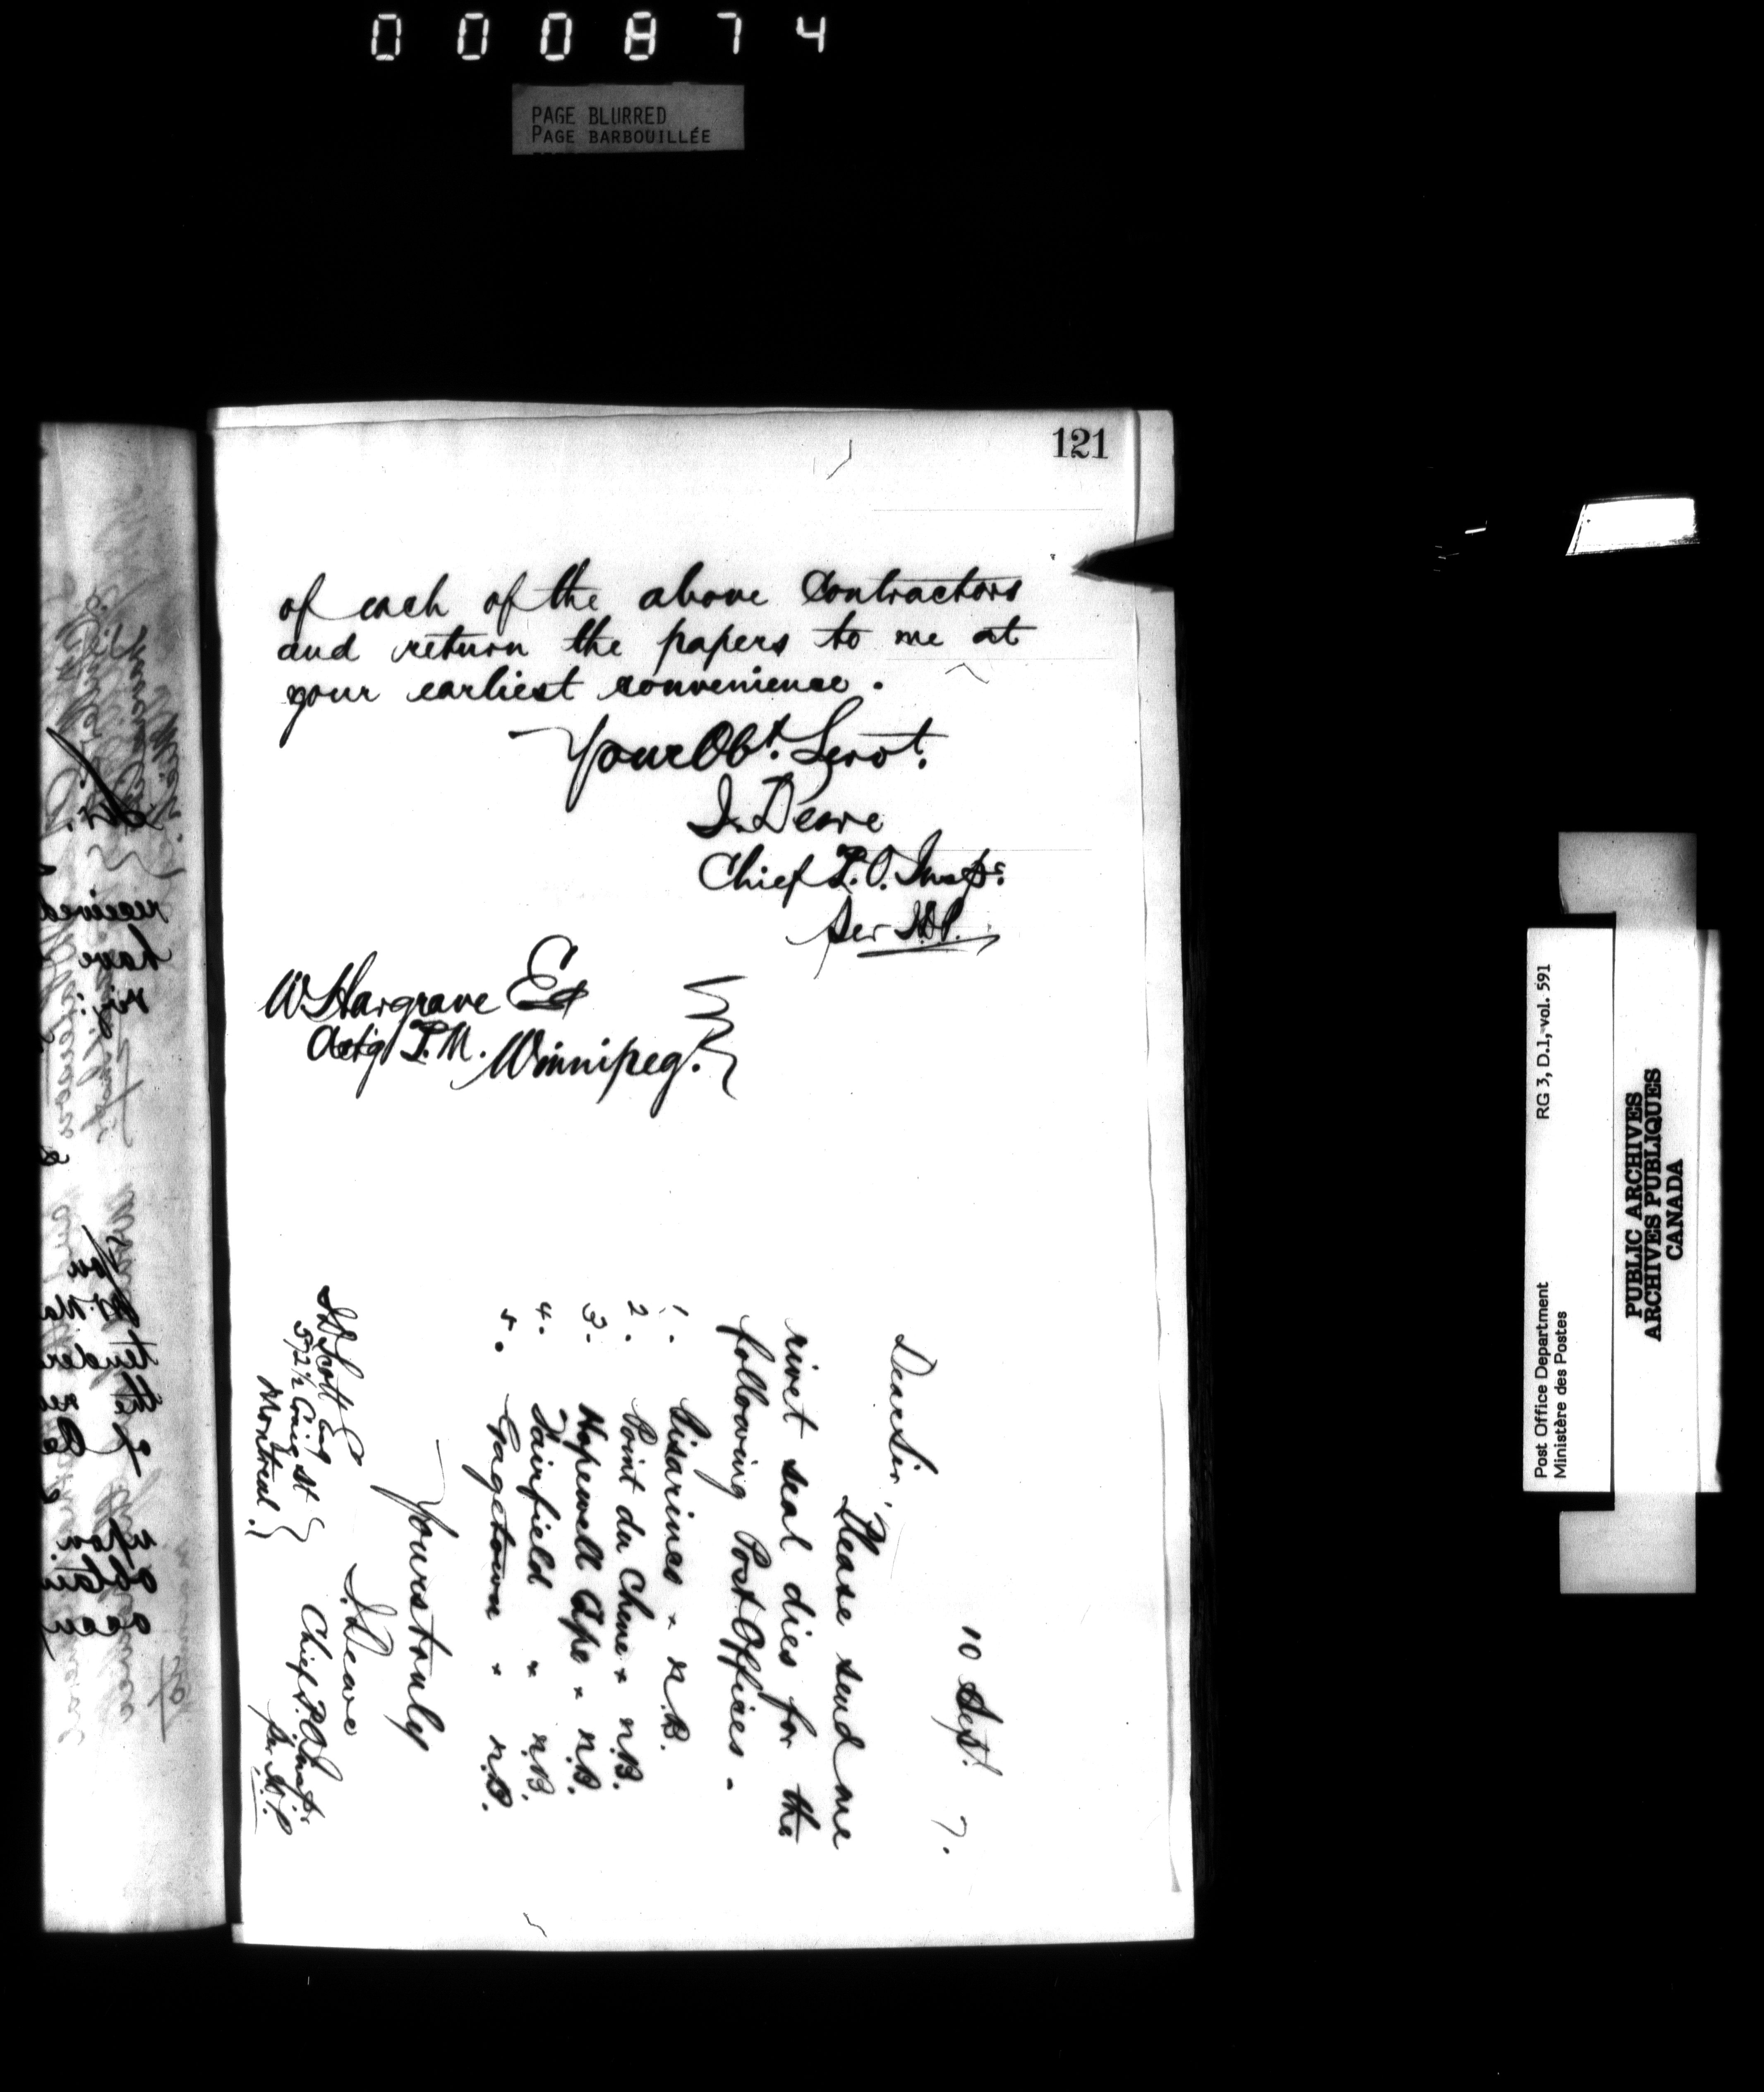 000874
PAGE BLURRED
PAGE BARBOUILLÉE
121
of each of the above Contractors
and return the papers to me at
your earliest convenience.
Your Obt. Servt.
J. Dewe
Chief P.O. Inspr.
per
W. Hargrave Esq
Actg P.M. Winnipeg.
10 Sept. 7.
Dear Sir,
Please send me
rivet seal dies for the
following Post Offices -
1. Pisarinco " N.B.
2. Point du Chene " N.B.
3. Hopewell Cape " N.B.
4. Fairfield " N.B.
5. Gagetown " N.B.
Yours truly
J. Dewe
Chief P.O. Inspr.
per
Scott Esq
572½ Craig St
Montreal.
Post Office Department RG 3, D.1, vol. 591
Ministère des Postes
PUBLIC ARCHIVES
ARCHIVES PUBLIQUES
CANADA
received
have
You
tender
the
of
upon